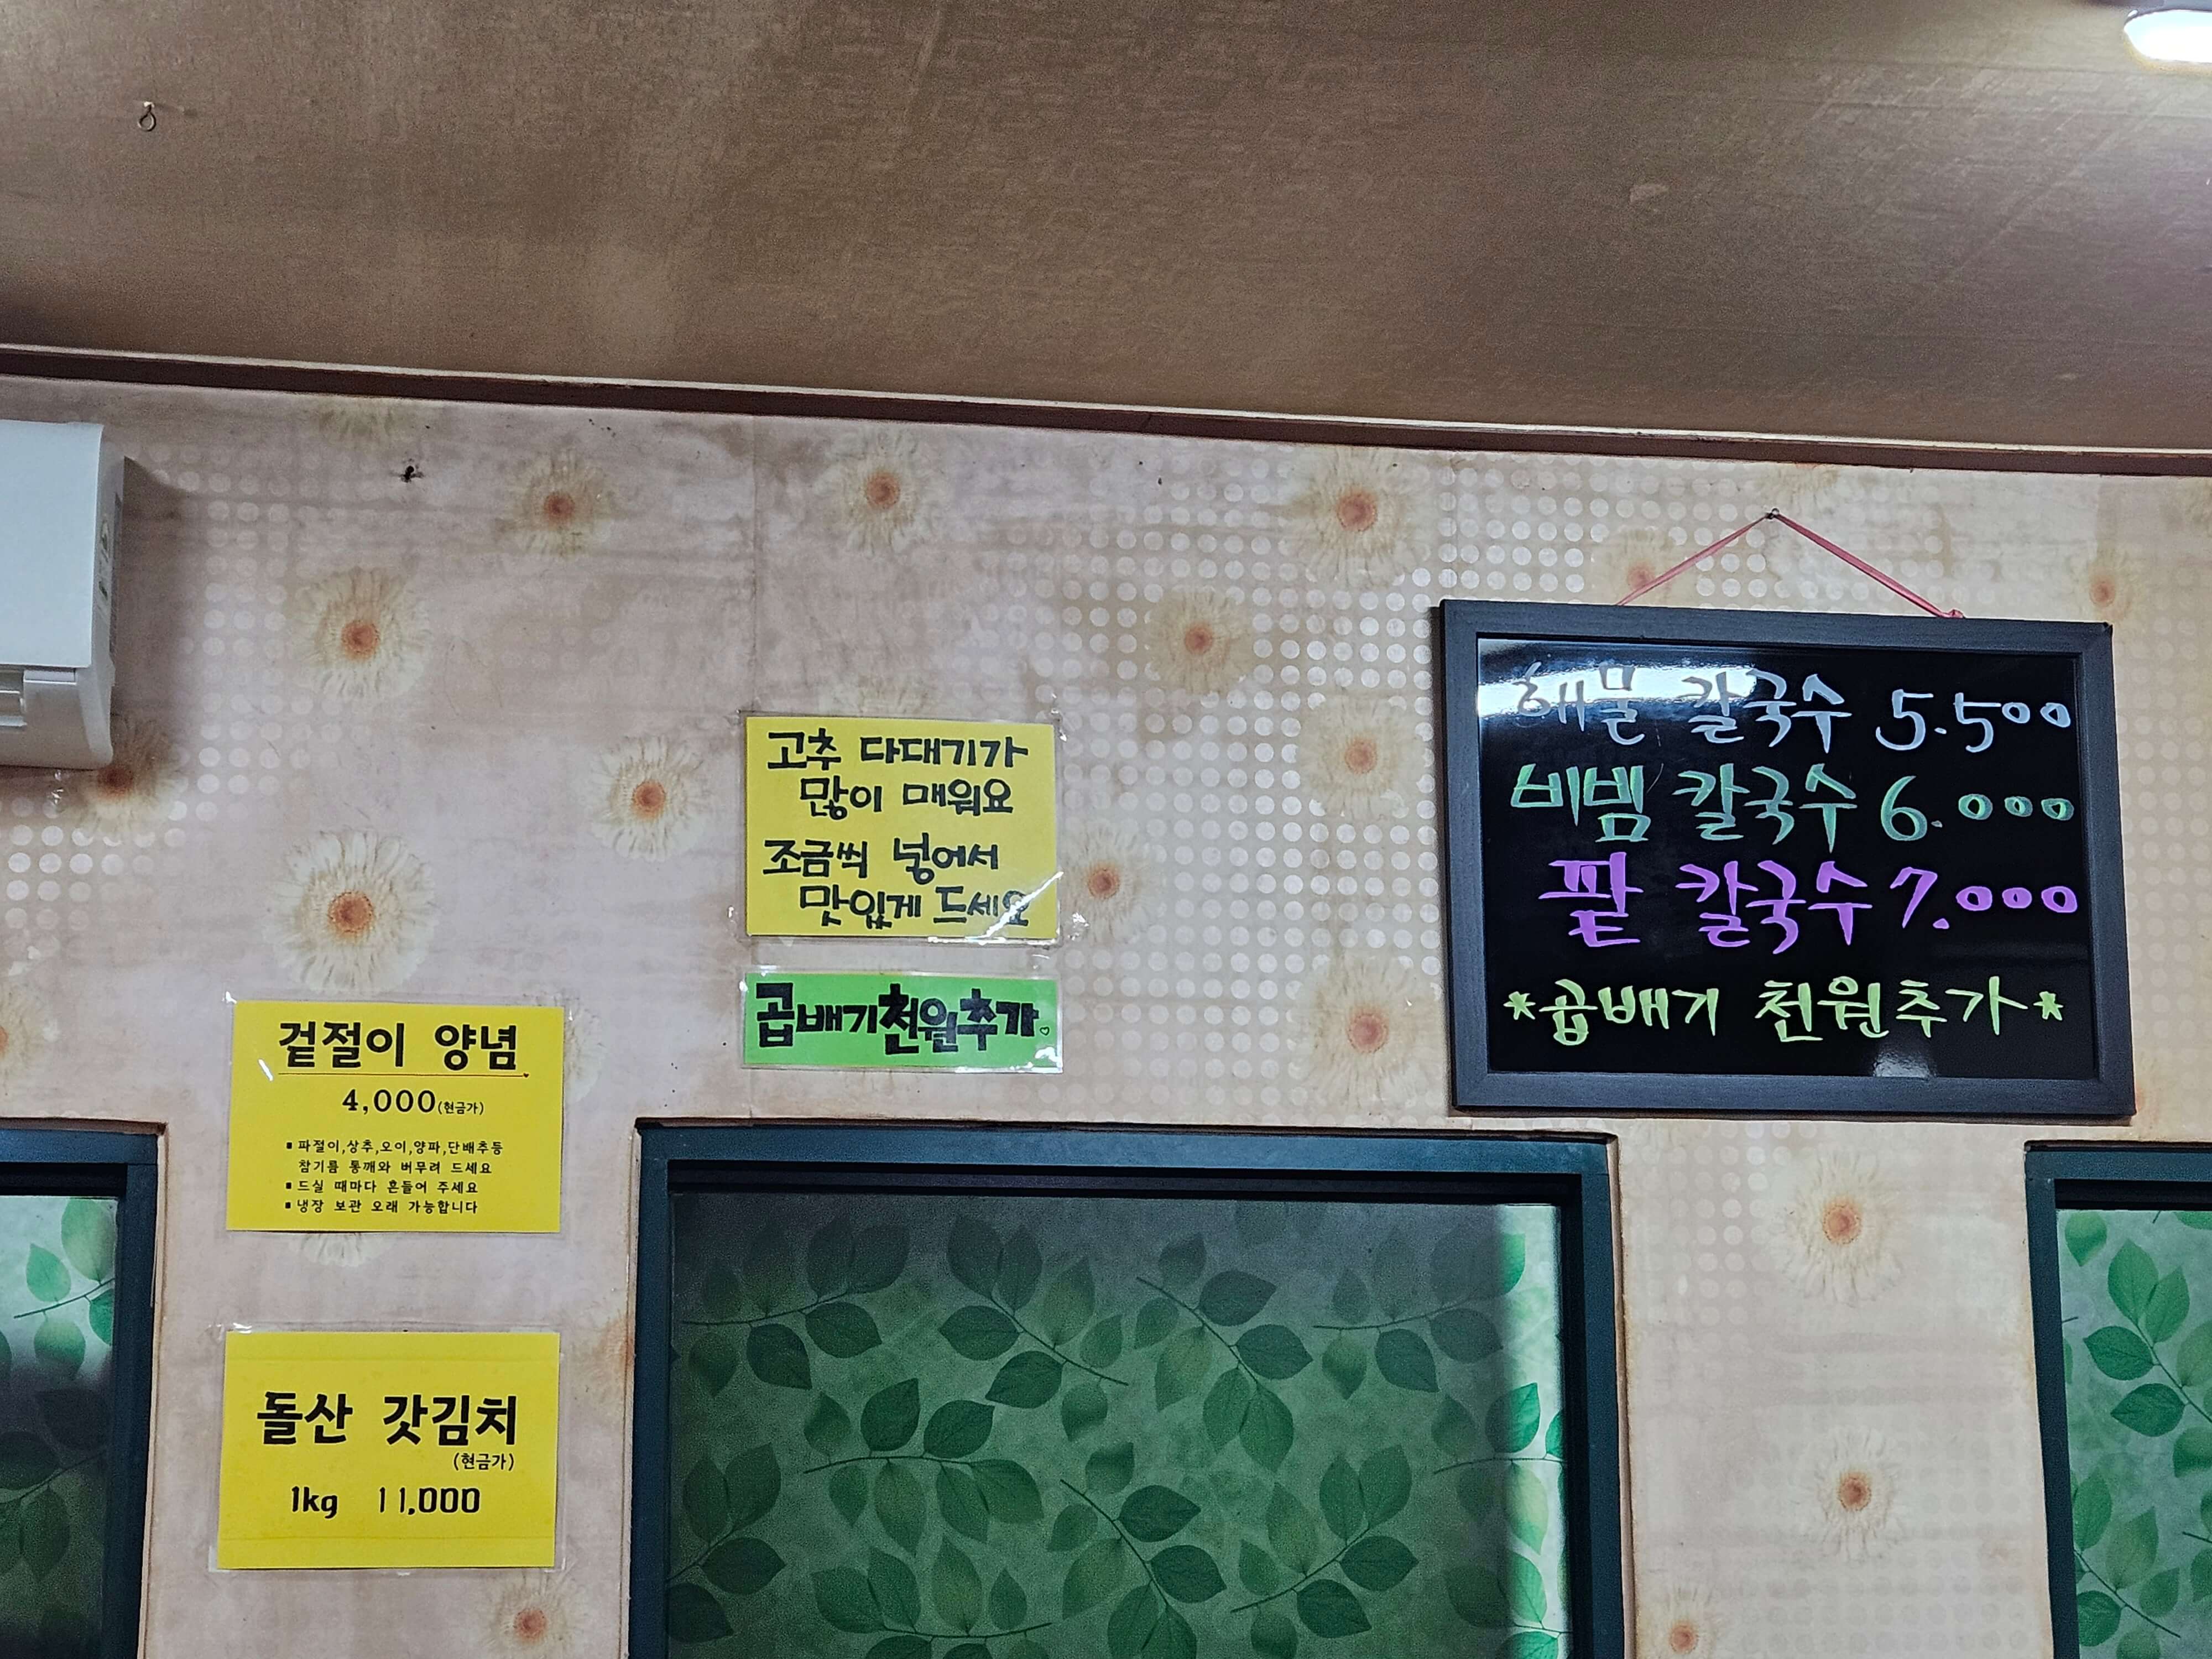 고추 다대기가
많이 매워요
조금씩 넣어서
맛있게 드세요
곱배기천원추가
해물 칼국수 5.500
비빔 칼국수 6.000
팥 칼국수 7.000
*곱배기 천원추가*
겉절이 양념
4,000(현금가)
▪파절이,상추,오이,양파,단배추등
참기름 통깨와 버무려 드세요
▪드실 때마다 흔들어 주세요
▪냉장 보관 오래 가능합니다
돌산 갓김치
(현금가)
1kg 11,000